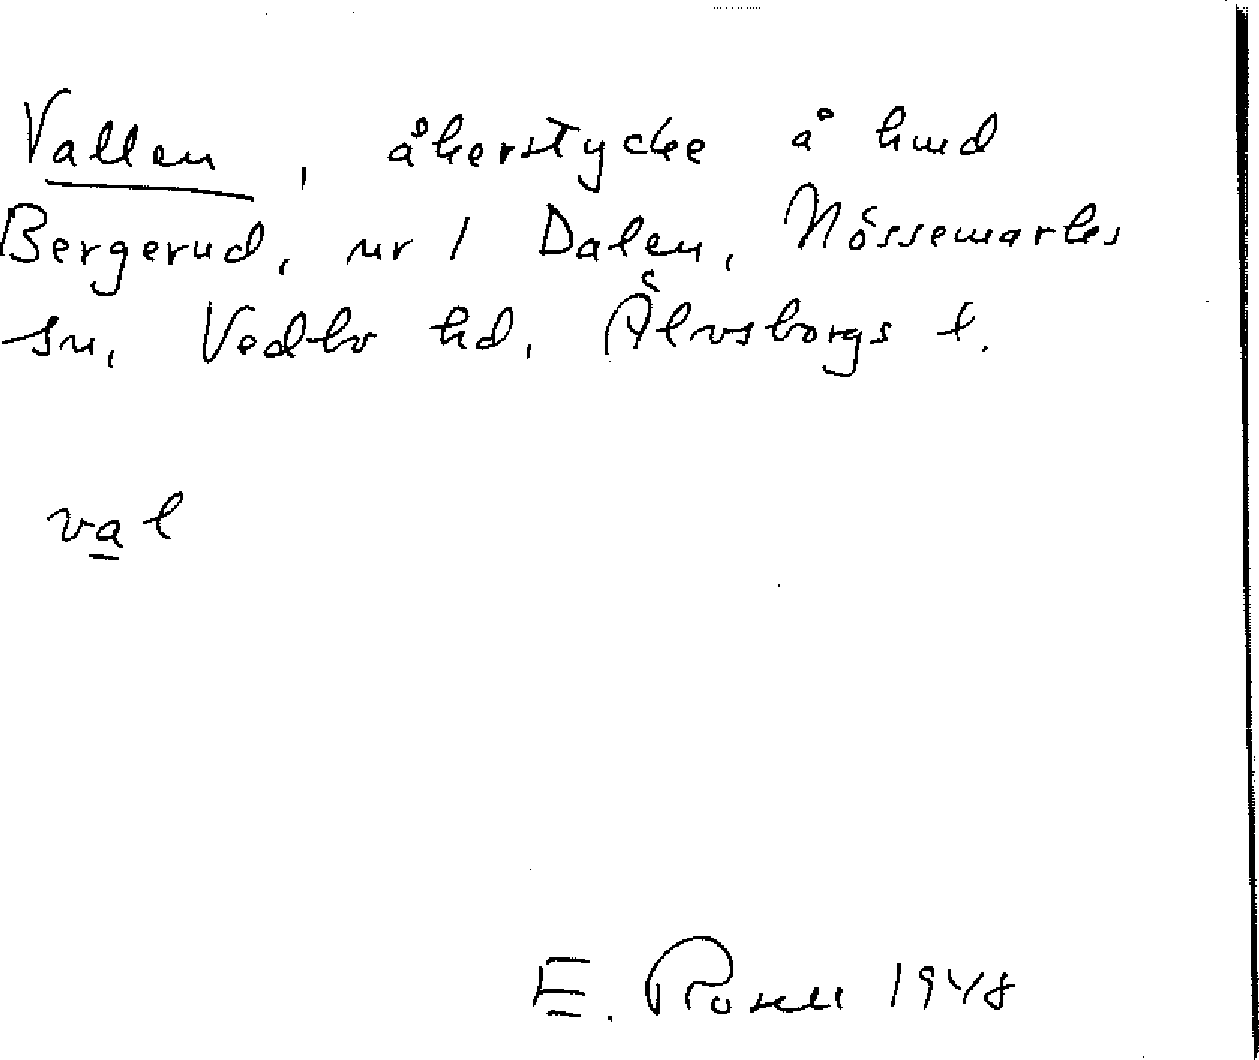 Vallen, åkerstycke å hmd
Bergerud, nr 1 Dalen, Nössemarks
sn, Vedbo hd, Älvsborgs l.
val
E. Rosell 1948